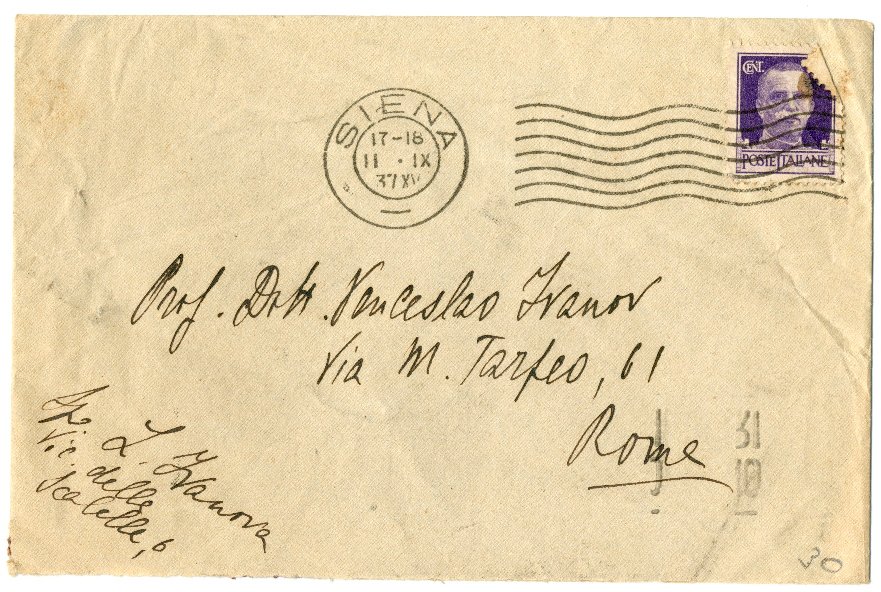 SIENA
17-18
11 · IX
37 XV
CENT.
POSTE ITALIANE
Prof. Dott. Venceslao Ivanov
Via M. Tarpeo, 61
Roma
L. Ivanova
Via delle
Scalelle, 6
31
10
30